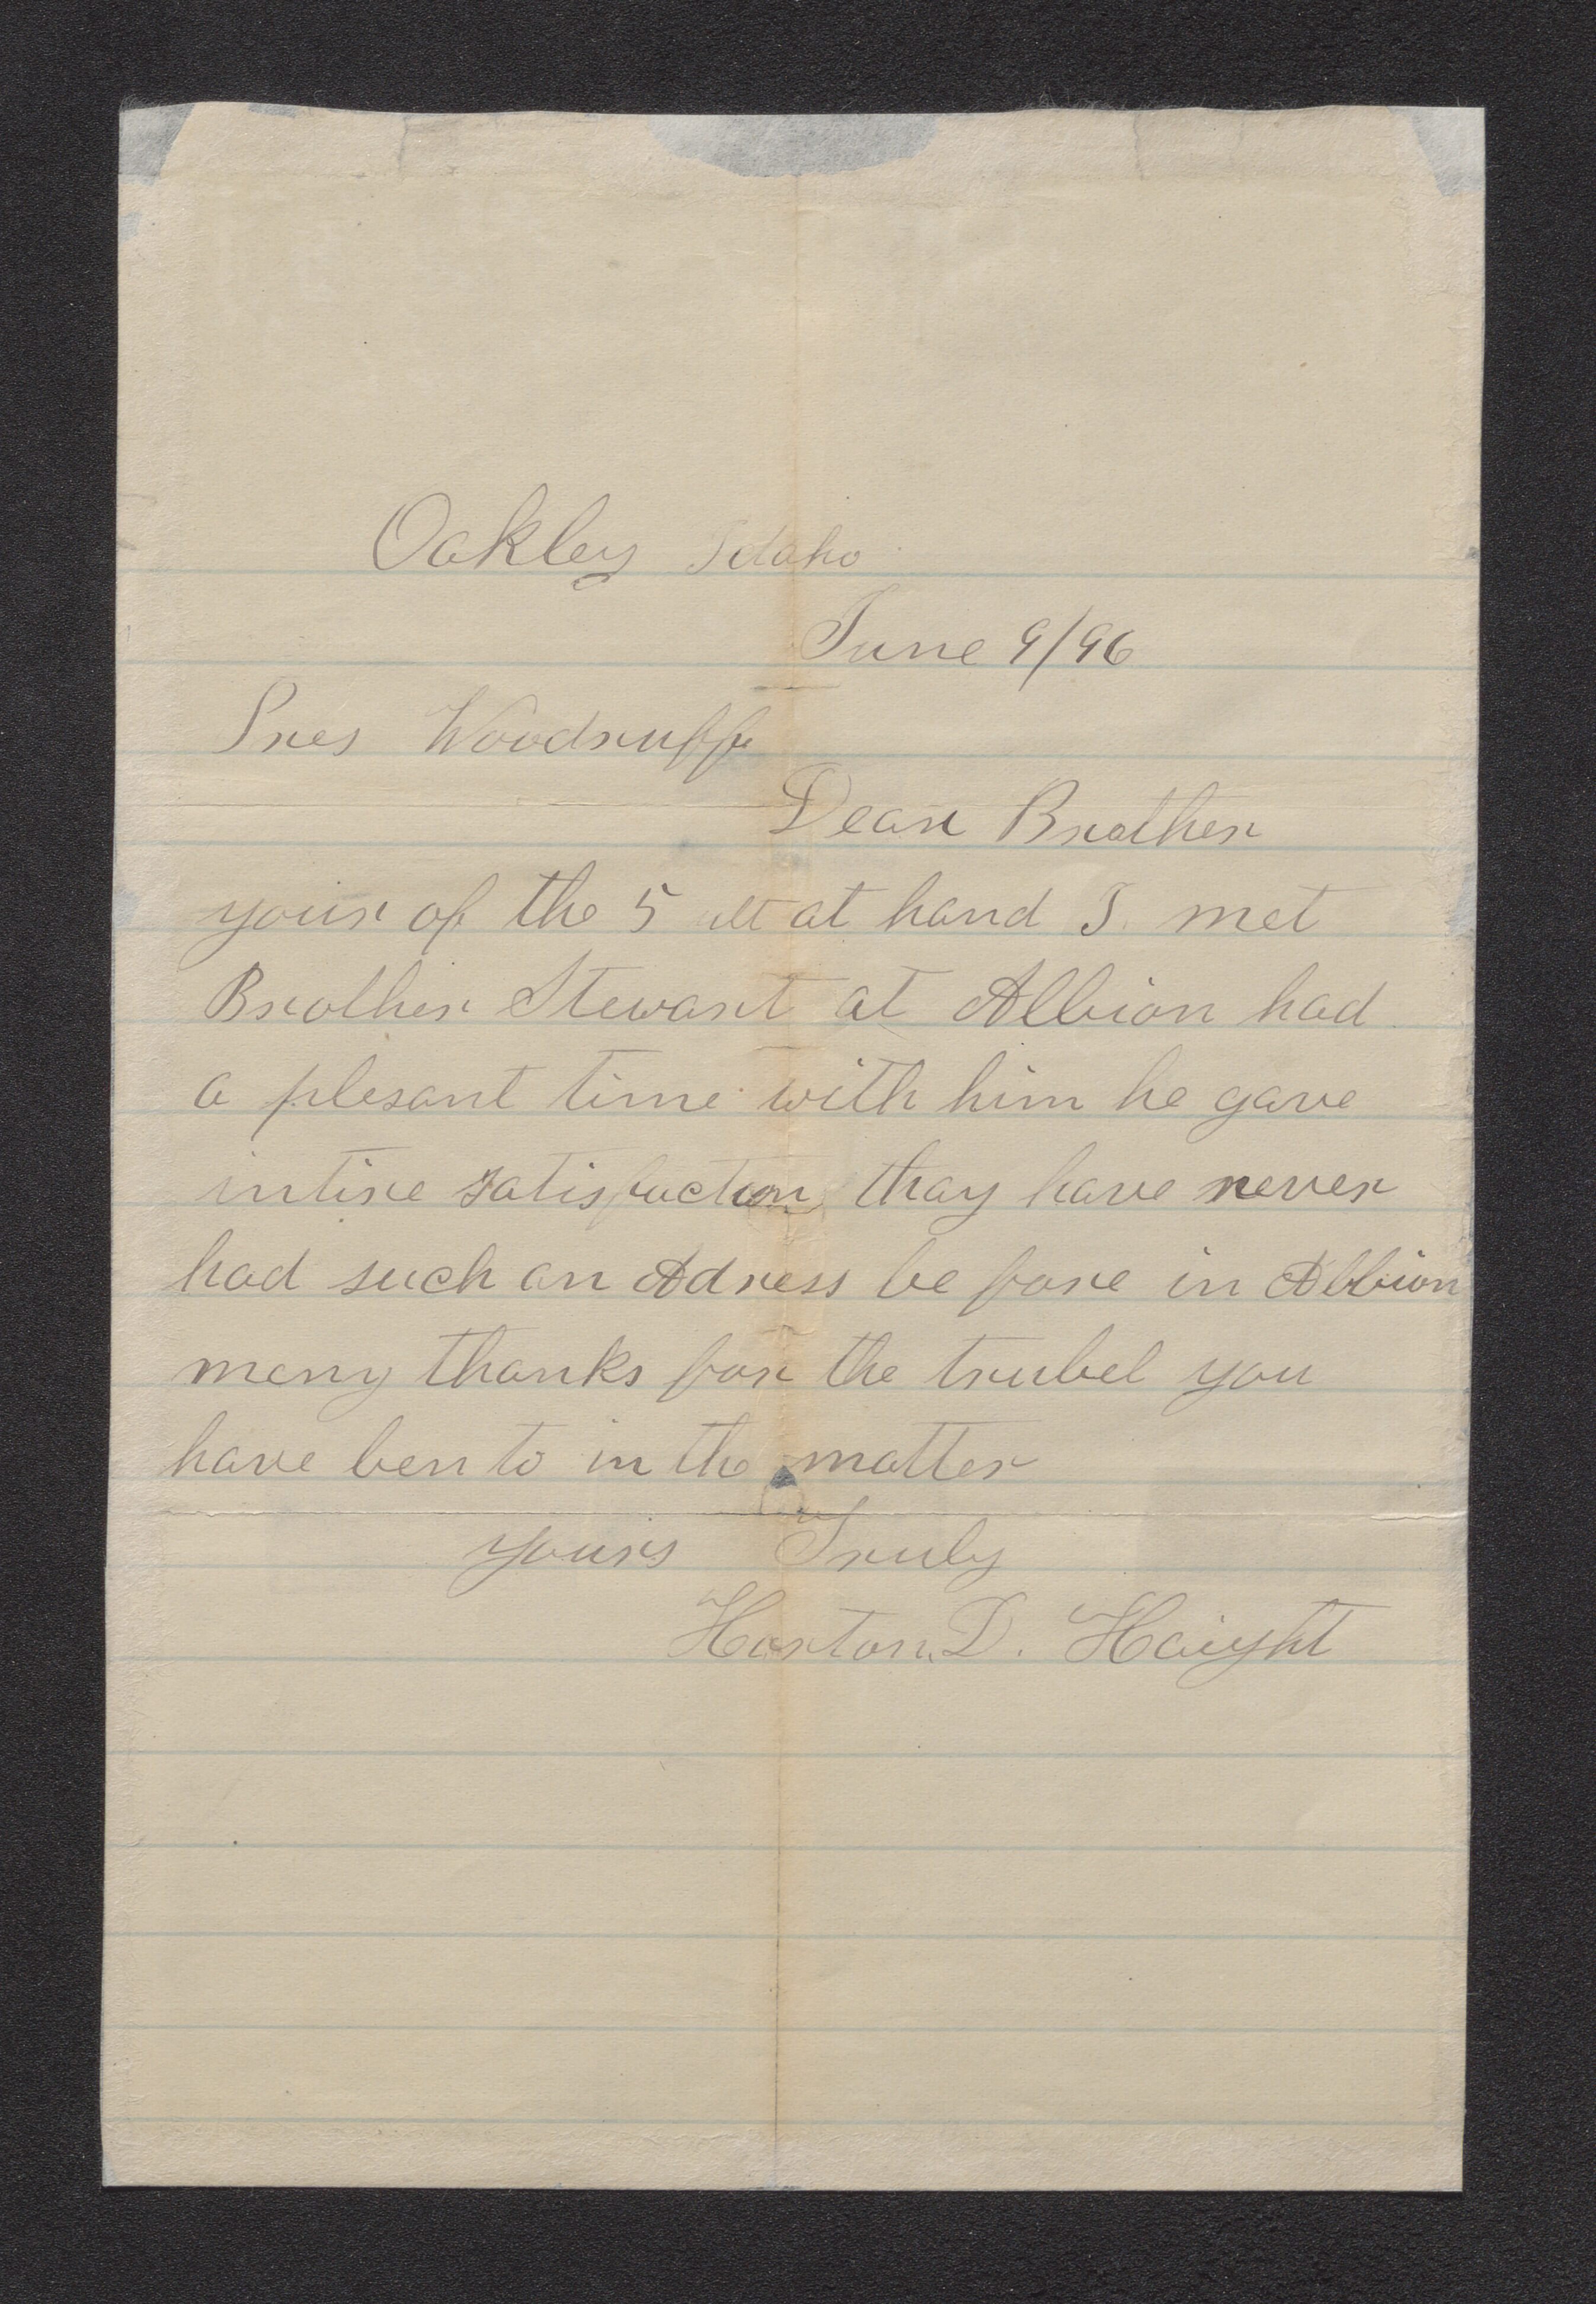 Oakley Idaho
June 9/96
Pres Woodruff
Dear Brother
your of the 5 ult at hand I met
Brother Stewart at Albion had
a plesant time with him he gave
intire satisfaction thay have never
had such an Adress be fore in Albion
meny thanks for the trubel you
have ben to in the matter
yours Truly
Horton. D. Haight